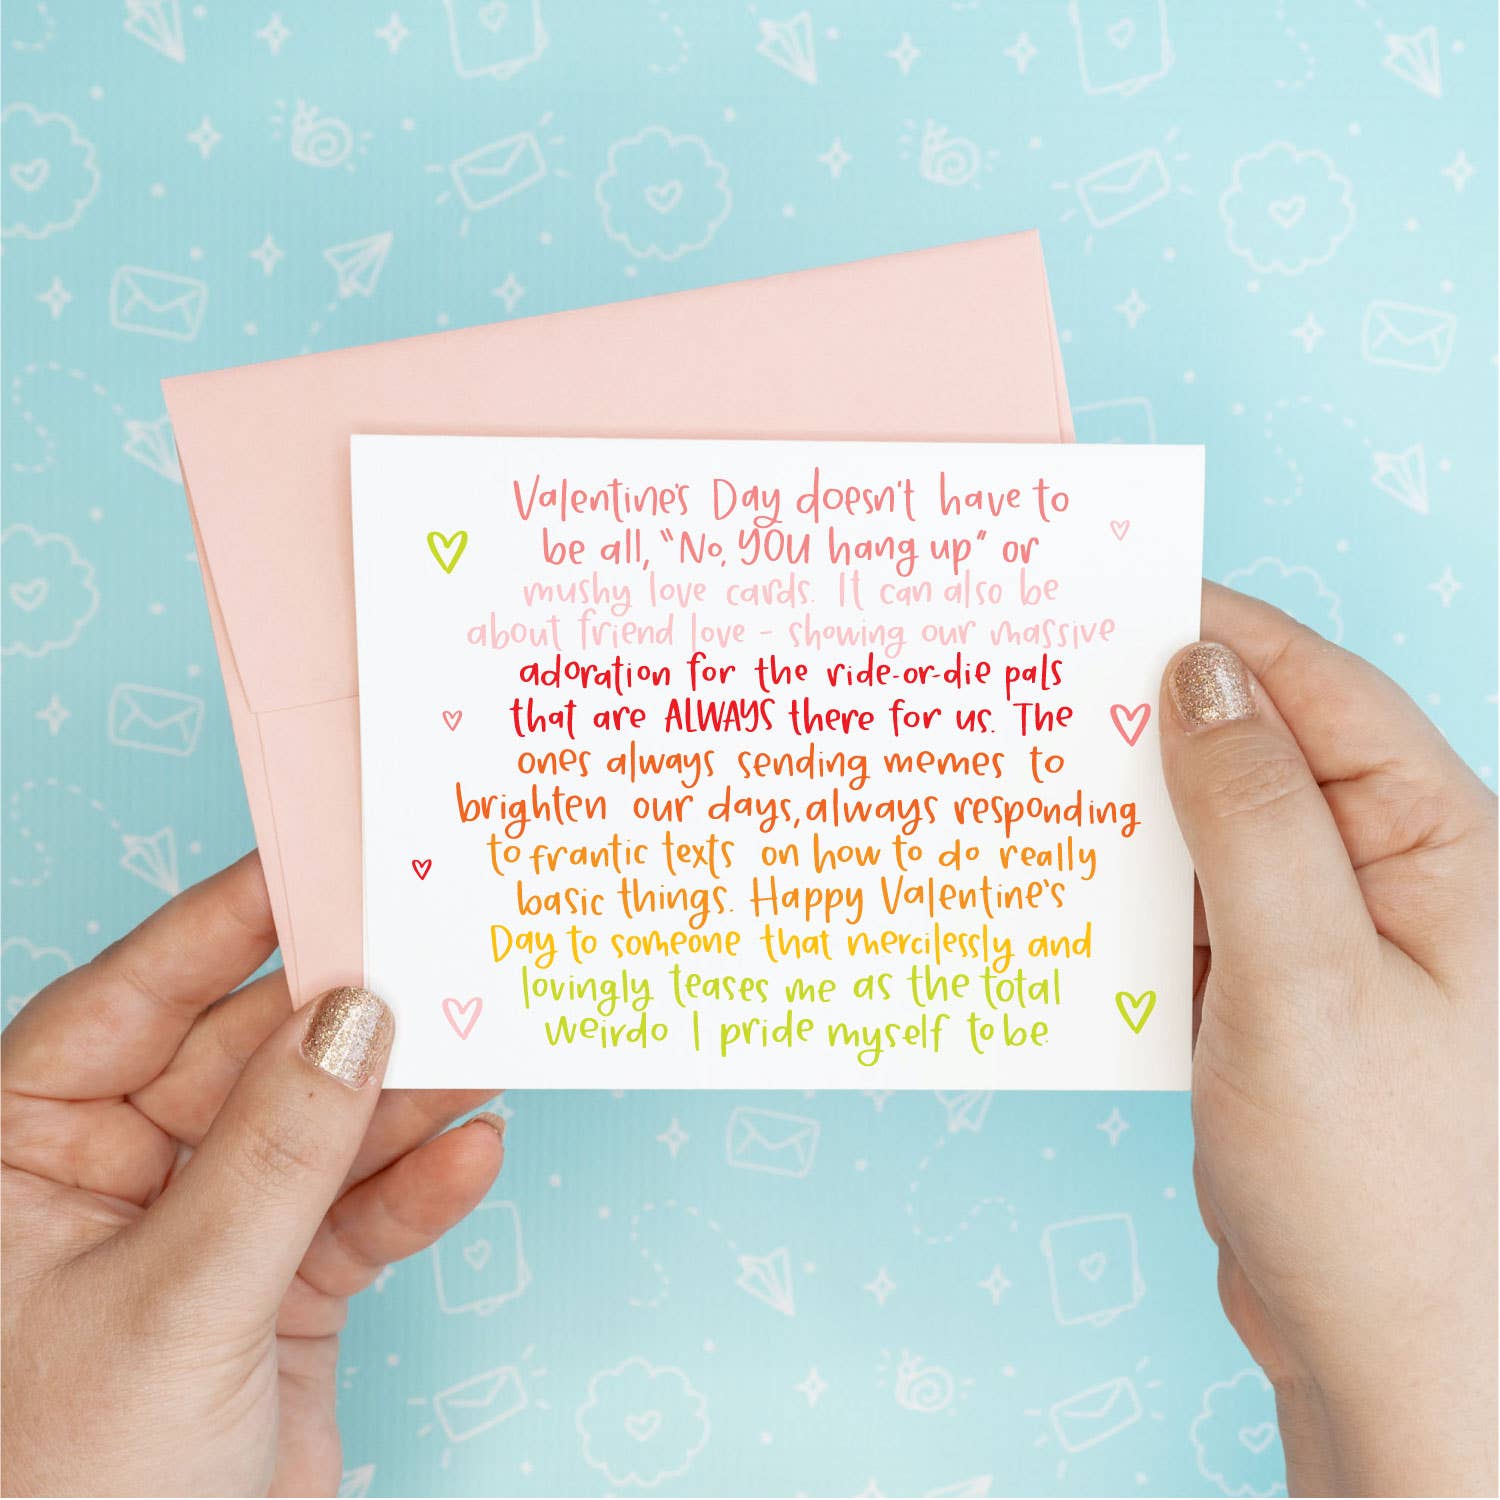 Valentine's Day doesn't have to
be all, "No, YOU hang up" or
mushy love cards. It can also be
about friend love - showing our massive
adoration for the ride-or-die pals
that are ALWAYS there for us. The
ones always sending memes to
brighten our days, always responding
to frantic texts on how to do really
basic things. Happy Valentine's
Day to someone that mercilessly and
lovingly teases me as the total
weirdo I pride myself to be.